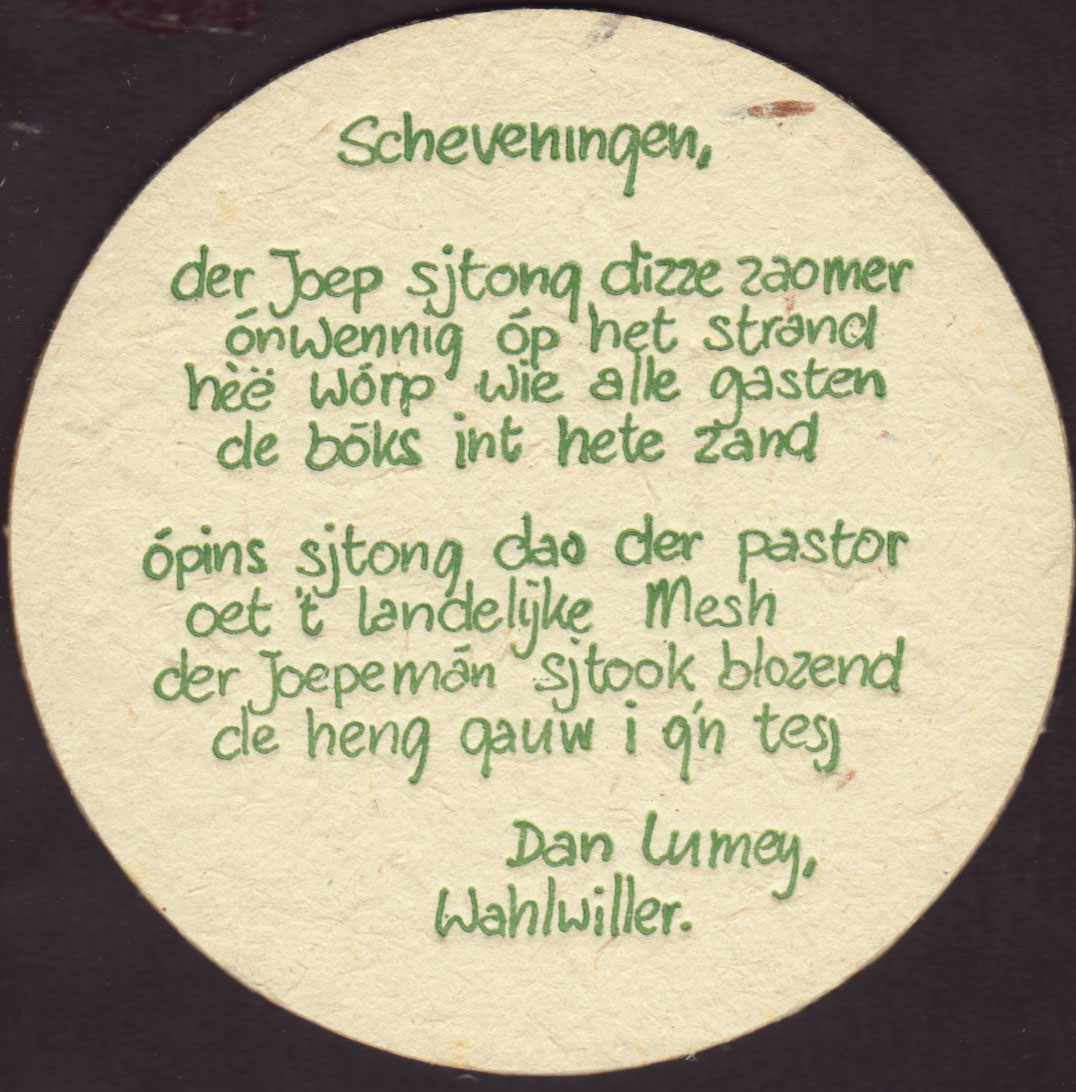 Scheveningen,
der Joep sjtong dizze zaomer
ónwennig óp het strand
hèë wórp wie alle gasten
de bóks int hete zand
ópins sjtong dao der pastor
oet 't landelijke Mesh
der Joepemán sjtook blozend
de heng gauw i g'n tesj
Dan Lumey,
Wahlwiller.